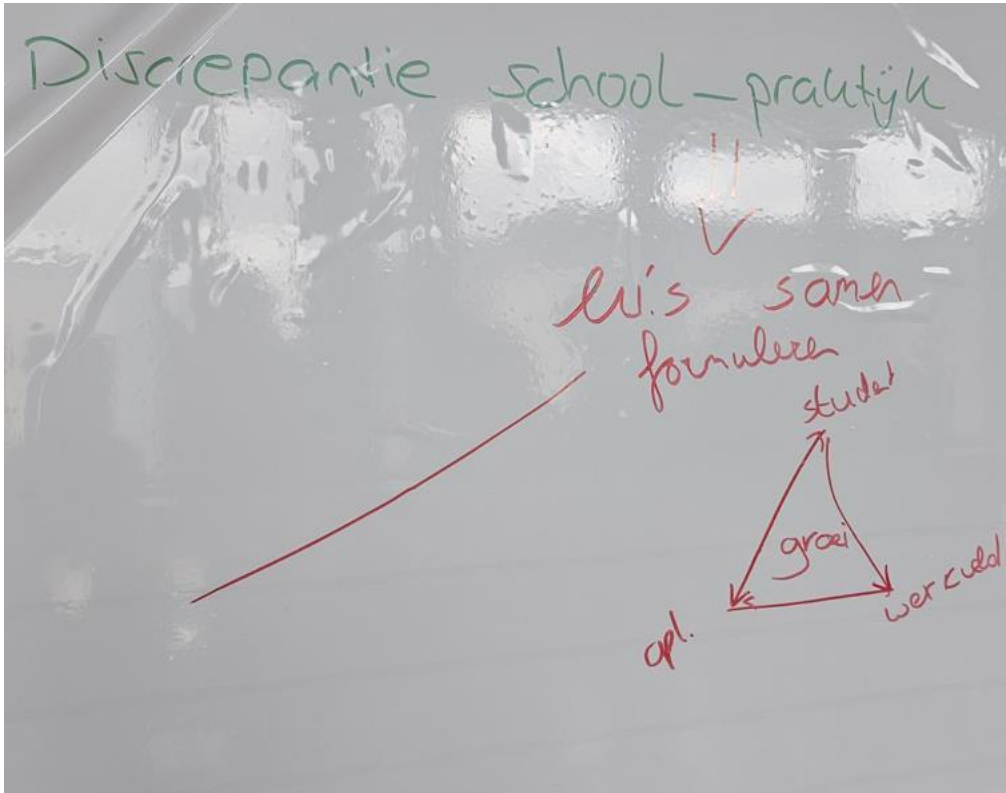 Discrepantie school - praktijk
lwi's samen
formuleren
student
groei
werkveld
opl.